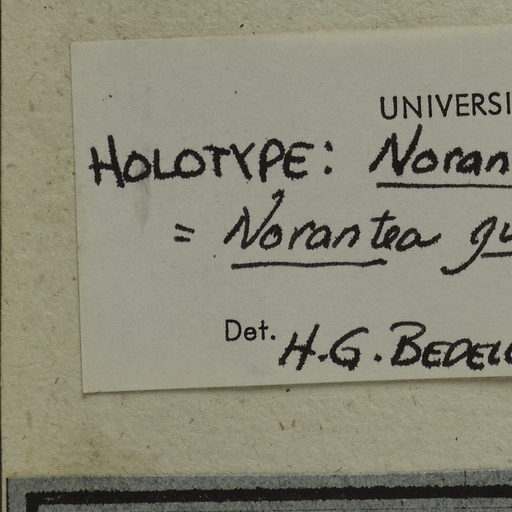 UNIVERSI
HOLOTYPE: Noran
= Norantea gu
Det. H.G. BEDELL